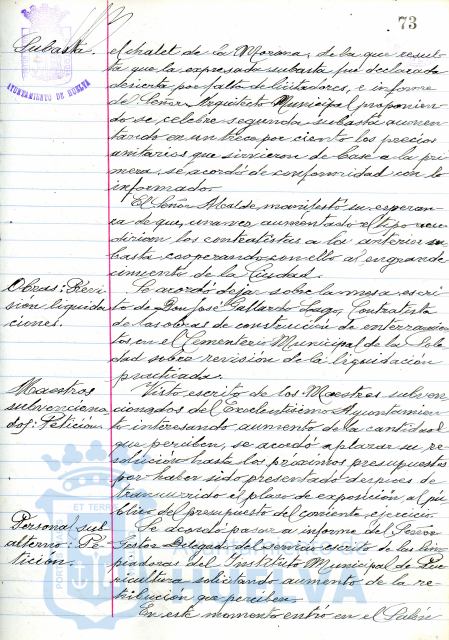 73
Subasta.
AYUNTAMIENTO DE HUELVA
el chalet de la Morana, de la que resul-
ta que la expresada subasta fue declarada
desierta por falta de licitadores, e informe
del Señor Arquitecto Municipal proponien-
do se celebre segunda subasta aumen-
tando en un trece por ciento los precios
unitarios que sirvieron de base a la pri-
mera, se acordó de conformidad con lo
informado.
El Señor Alcalde manifestó su esperan-
za de que, una vez aumentado el tipo acu-
dirian los contratistas a la anterior su-
basta cooperando con ello al engrande-
cimiento de la Ciudad.
Obras: Revi-
sión liquida-
ciones.
Se acordó dejar sobre la mesa escri-
to de Don José Gallardo Lago, Contratista
de las obras de construcción de enterramien-
tos en el Cementerio Municipal de la Sole-
dad sobre revisión de la liquidación
practicada.
Maestros
subvenciona-
dos: Petición
Visto escrito de los Maestros subven-
cionados del Excelentísimo Ayuntamien-
to interesando aumento de la cantidad
que perciben, se acordó aplazar su re-
solución hasta los próximos presupuestos
por haber sido presentado después de
transcurrido el plazo de exposición al pú-
blico del presupuesto del corriente ejercicio
Personal sub-
alterno: Pe-
tición.
Se acordó pasar a informe del Señor
Gestor Delegado del servicio escrito de las lim-
piadoras del Instituto Municipal de Pue-
ricultura solicitando aumento de la re-
tribución que perciben.
En este momento entró en el Salón